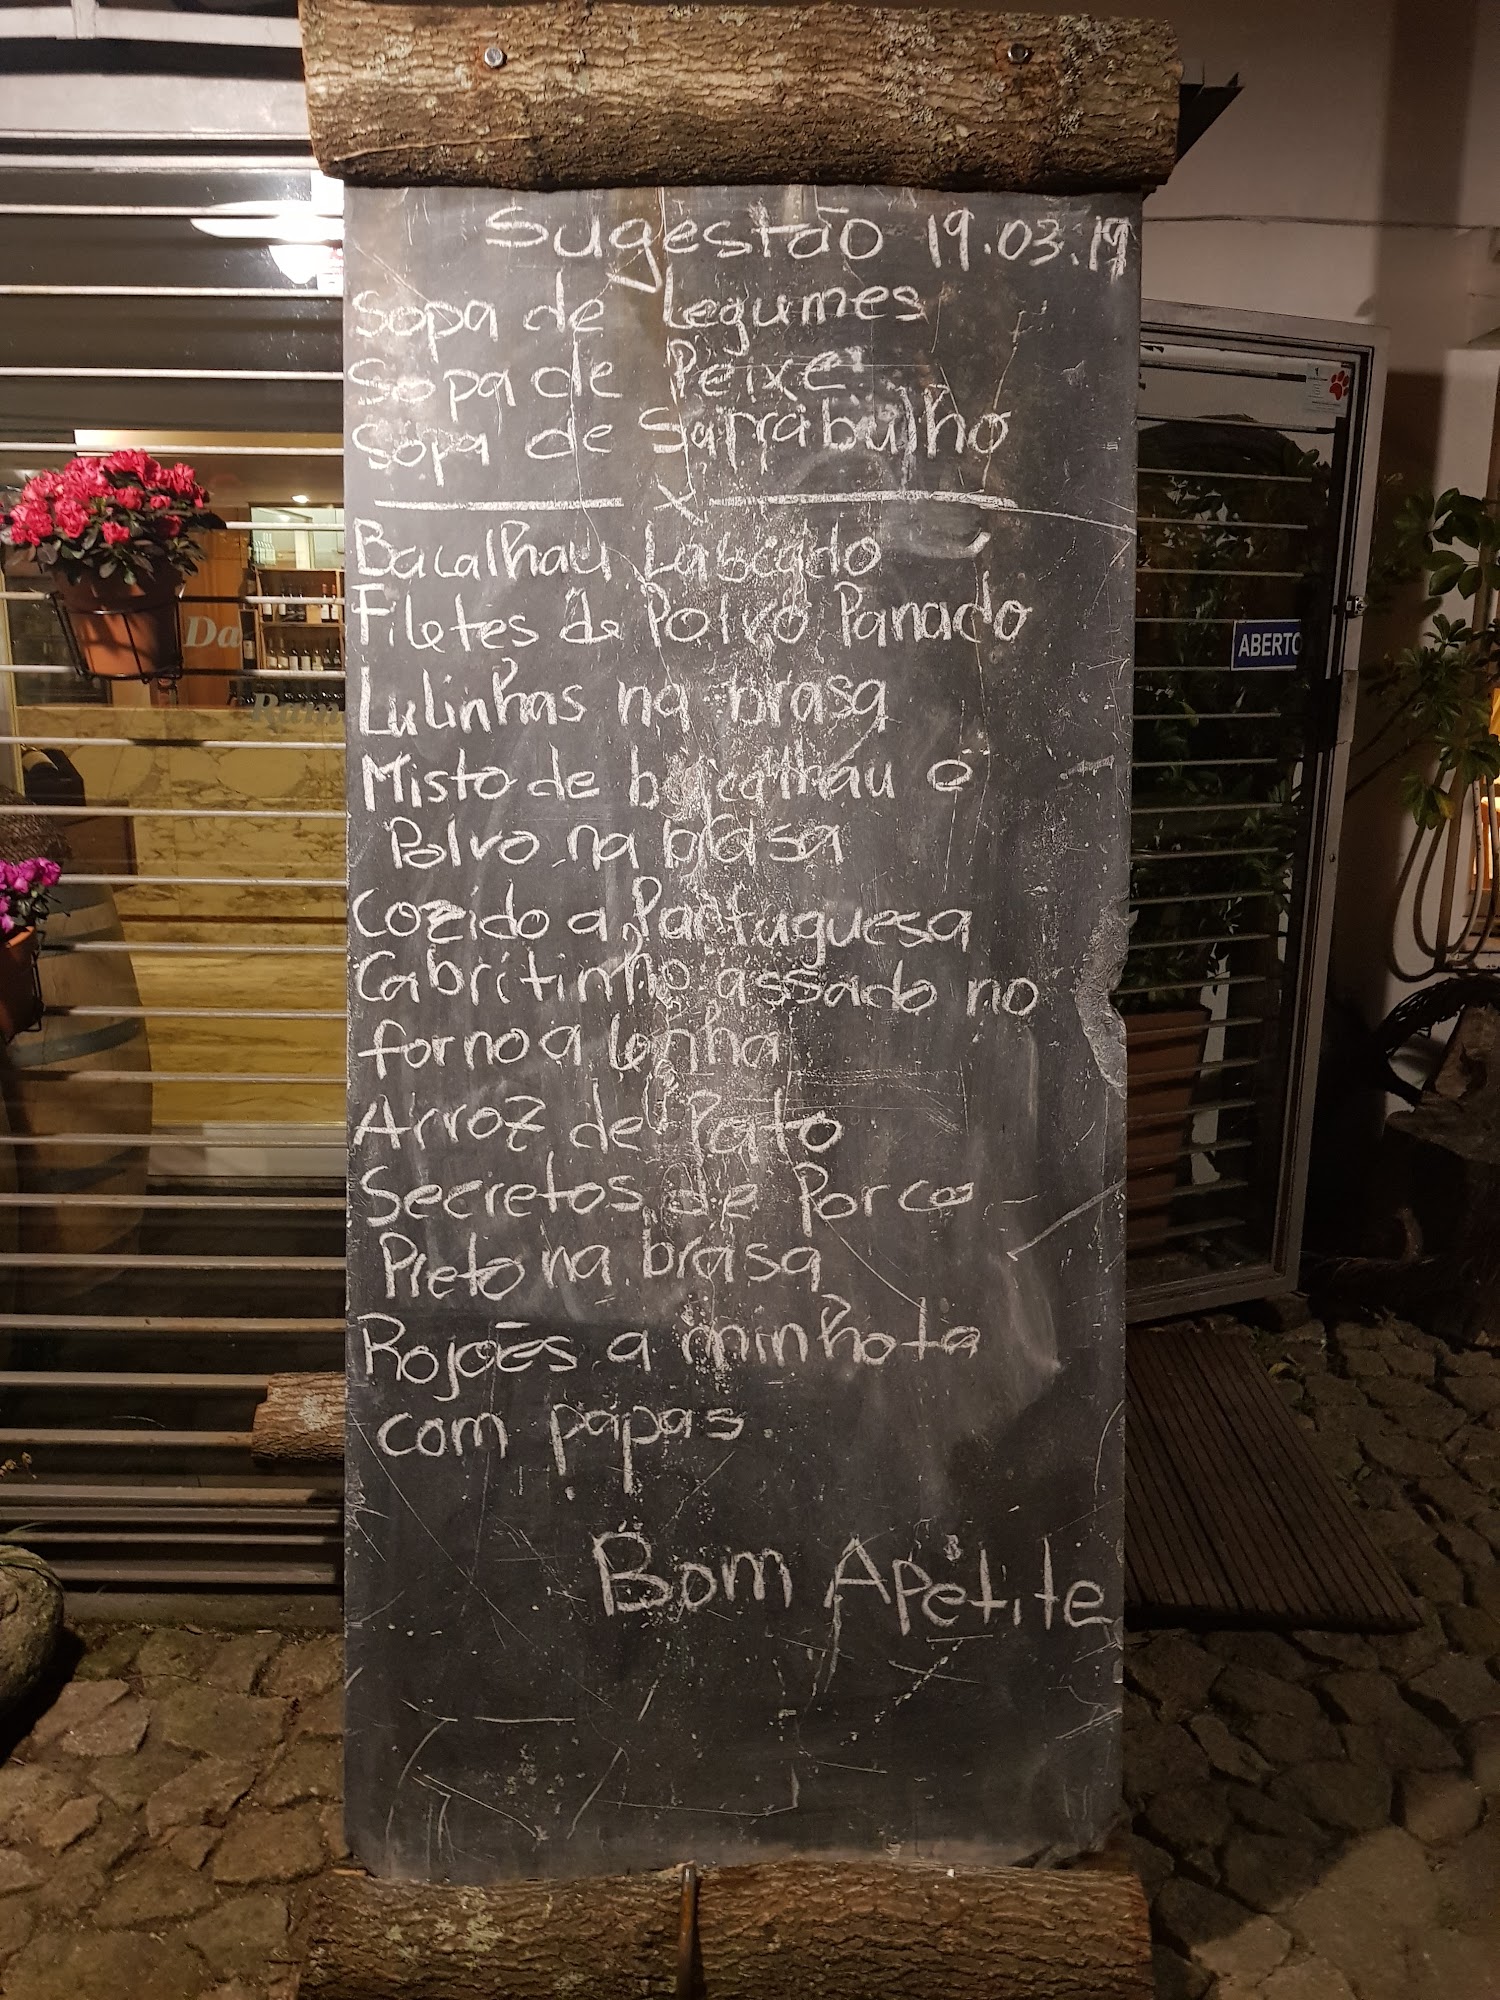 Sugestão 19.03.19
Sopa de Legumes
Sopa de Peixe
Sopa de Sarrabulho
x
Bacalhau Lascado
Filetes de Polvo Panado
Lulinhas na brasa
Misto de bacalhau e
Polvo na brasa
Cozido a Portuguesa
Cabritinho assado no
forno a lenha
Arroz de Pato
Secretos de Porco
Preto na brasa
Rojões a minhota
com papas.
Bom Apetite
ABERTO
Da
Ram